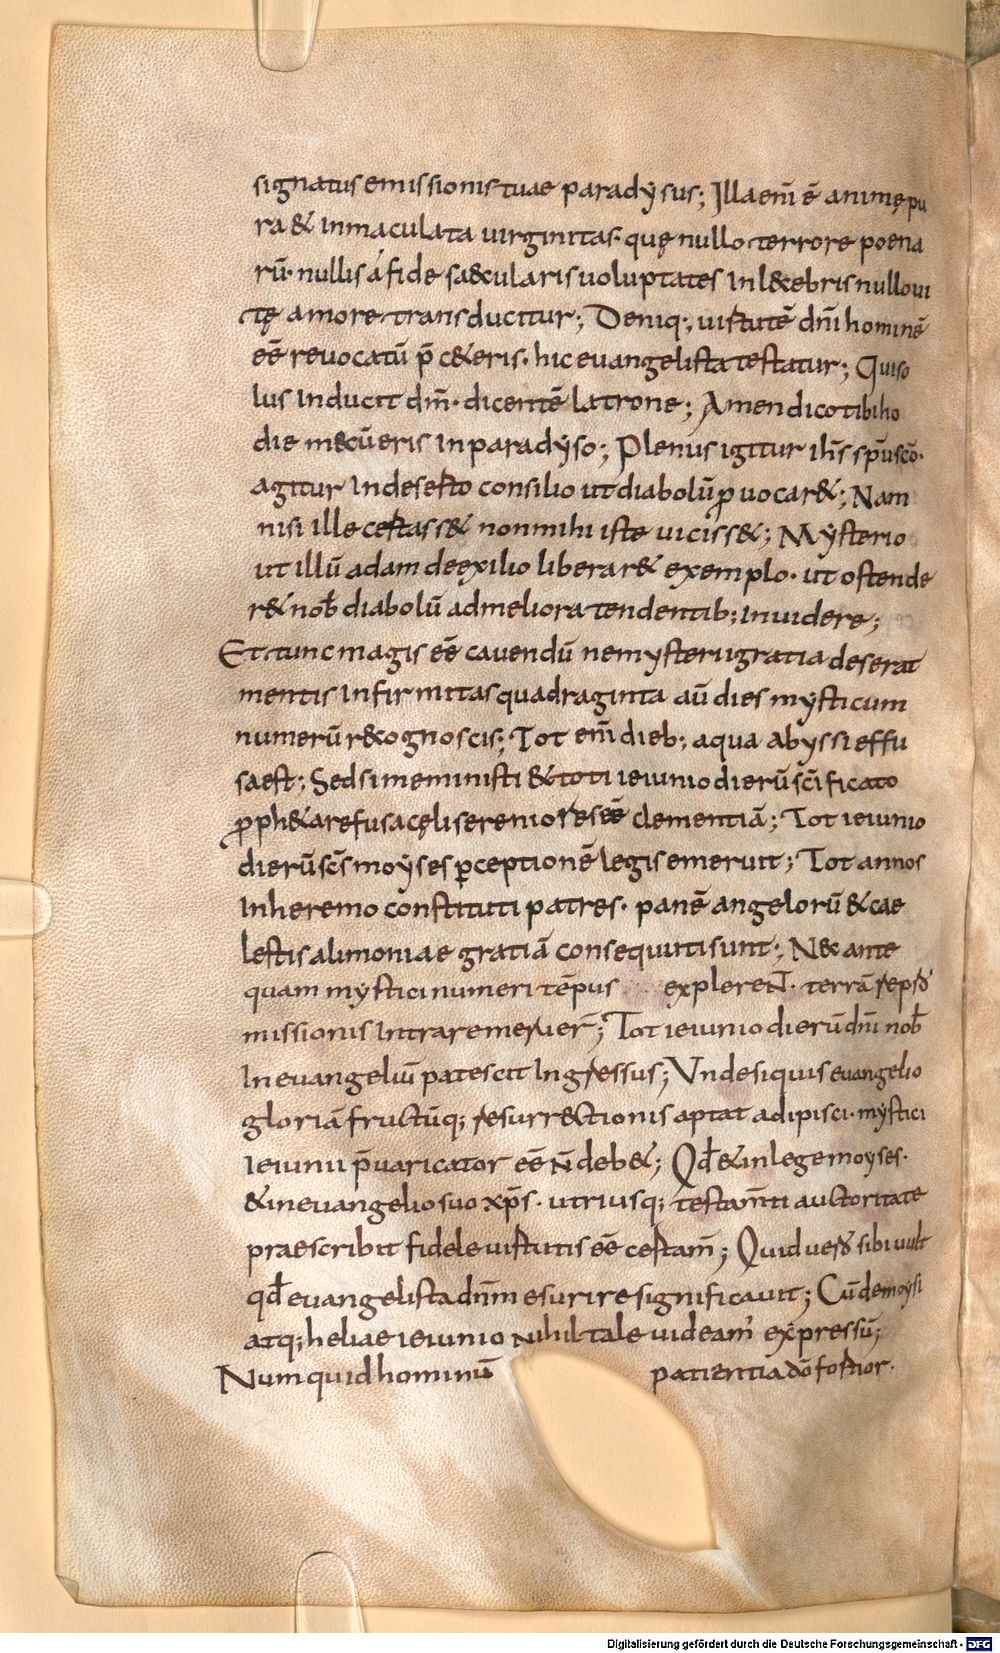 signatus emissionis tuae paradẏsus; Illa eni̅ e̅ animę pu
ra & inmaculata uirginitas quę nullo terrore poena
ru̅· nullis a fide saecularis uoluptates inl&ebris nullo ui
tę amore transducitur; Deniq; uirtute̅ dn̅i homine̅
ee̅ reuocatu̅ p̅ c&eris· hic euangelista testatur; Qui so
lus inducit dn̅m· dicente̅ latrone; Amen dico tibi ho
die mecu̅ eris in paradẏso; Plenus igitur ih̅s sp̅u sc̅o·
agitur in deserto consilio ut diabolu̅ ꝓuocar&; Nam
nisi ille certass& non mihi iste uiciss&; Mẏsterio
ut illu̅ adam de exilio liberar& exemplo· ut ostende
r& nob̅ diabolu̅ ad meliora tendentib; inuidere;
Et tunc magis ee̅ cauendu̅ ne mẏsterii gratia deserat
mentis infirmitas quadraginta au̅ dies mẏsticum
numeru̅ r&ognoscis; Tot eni̅ dieb; aqua abẏssi effu
sa est; Sed si meministi & toti ieiunio dieru̅ sc̅ificato
ꝓph&a refusa cęli serenioris ee̅ clementia̅; Tot ieiunio
dieru̅ sc̅s moẏses ꝑceptione̅ legis emeruit; Tot annos
in heremo constituti patres· pane̅ angeloru̅ & cae
lestis alimoniae gratia̅ consequuti sunt; N& ante
quam mẏstici numeri te̅pus explerent· terra̅ repro
missionis intrare meruer̅; Tot ieiunio dieru̅ dn̅i nob̅
in euangeliu̅ patescit ingressus; Vnde si quis euangelio
gloria̅ fructu̅q; resurrectionis aptat adipisci· mẏstici
ieiunii p̅uaricator ee̅ n̅ deb&; Qd̅ & in lege moẏses·
& in euangelio suo xp̅s· utriusq; testam̅ti auctoritate
praescribit fidele uirtutis ee̅ certam̅; Quid uero sibi uult
qd̅ euangelista dn̅m esurire significauit; Cu̅ de moẏsi
atq; heliae ieiunio nihil tale uideam' expressu̅;
Numquid hominu̅ patientia do̅ fortior·
Digitalisierung gefördert durch die Deutsche Forschungsgemeinschaft - DFG